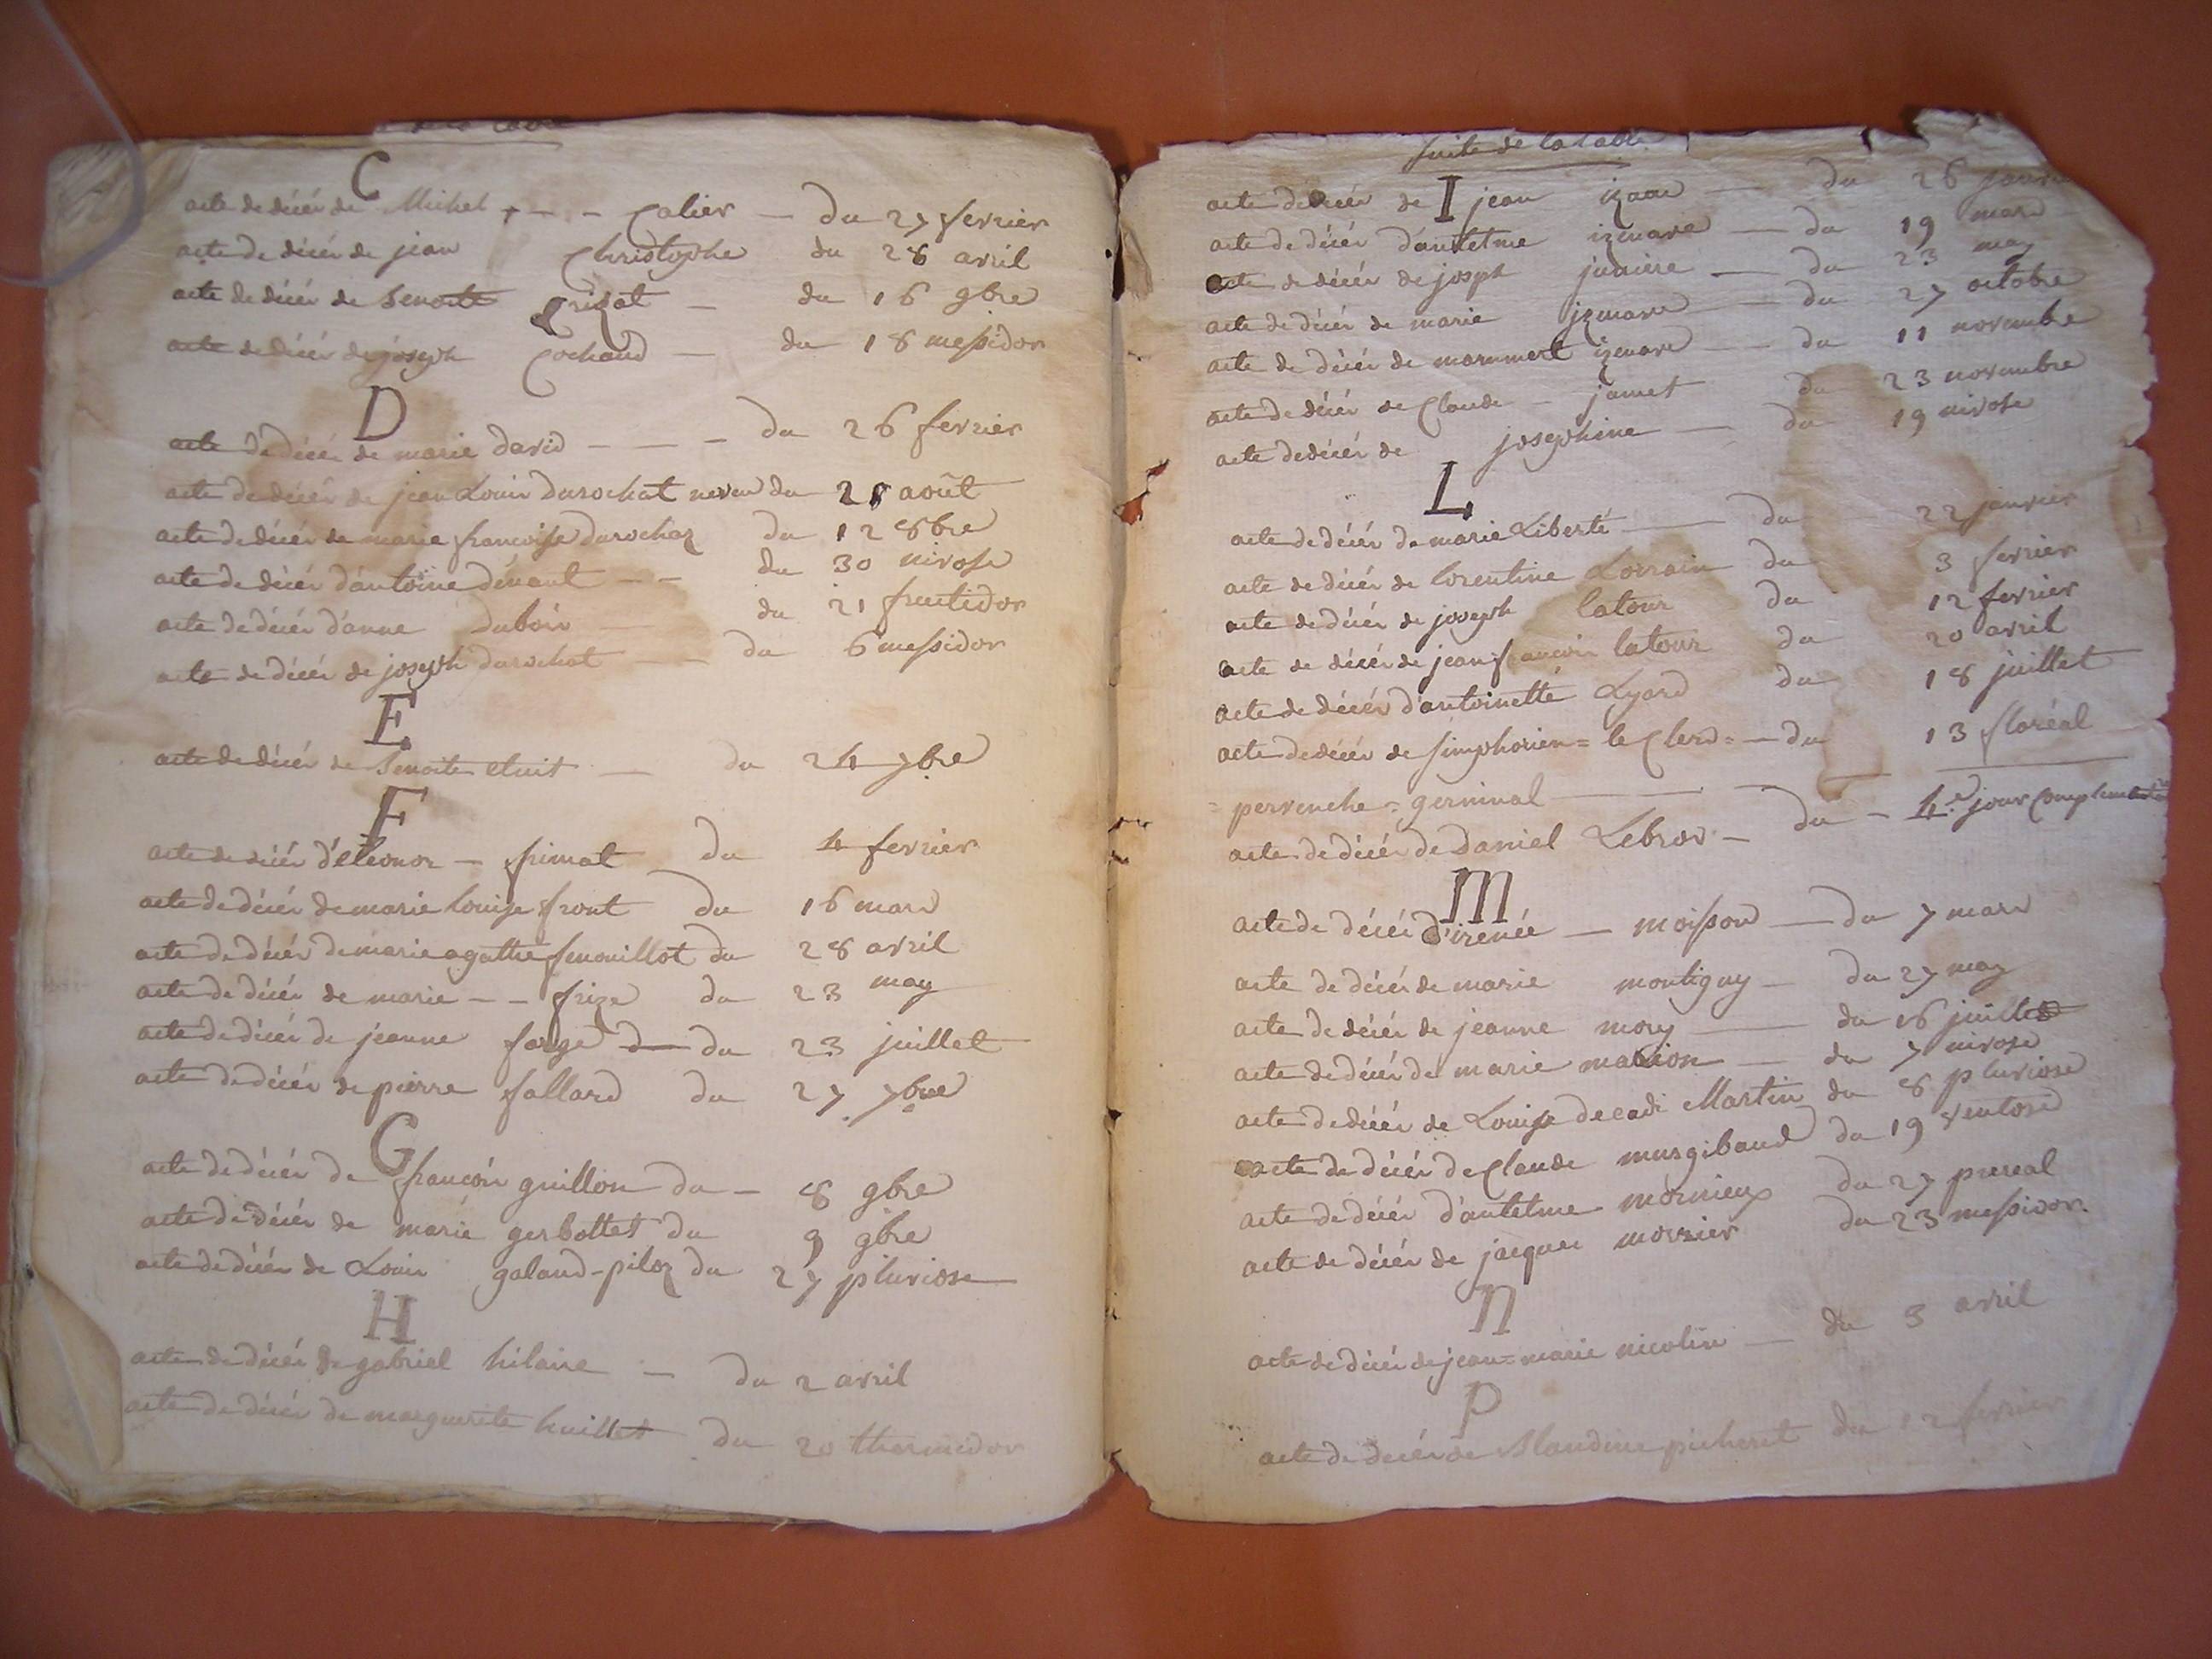 C
acte de décés de Michel - - - Calier - du 27 fevrier
acte de décés de jean Christophe du 28 avril
acte de décés de benoite Crizat - du 16 9bre
acte de décés de joseph Cochaud - du 18 messidor
D
acte de décés de marie david - - - du 26 fevrier
acte de décés de jean Louis durochat neveu du 21 août
acte de décés de marie françoise durochaz du 12 8bre
acte de décés d'antoine dénant - - du 30 nivose
acte de décés d'anne dubois du 21 fructidor
acte de décés de joseph durochat - du 6 messidor
E
acte de décés de benoite etuit - du 24 7bre
F
acte de décés d'éléonor - frimat du 4 fevrier
acte de décés de marie louise front du 16 mars
acte de décés de marie agathe fenouillot du 28 avril
acte de décés de marie - - frize du 23 may
acte de décés de jeanne farge du 23 juillet
acte de décés de pierre fallard du 27 7bre
G
acte de décés de françois guillon du - 8 9bre
acte de décés de marie gerbottet du 9 9bre
acte de décés de Louis galand-piloz du 27 pluviose
H
acte de décés de gabriel hilaire - du 2 avril
acte de décés de marguerite huillet du 20 thermidor
suite de la table
I
acte de décés de jean - du 26 janv
acte de décés d'antelme izenave - du 19 mars
acte de décés de joseph - du 23 may
acte de décés de marie izenave - du 27 octobre
acte de décés de mammert izenave - du 11 novembre
acte de décés de Claude - jamet du 23 novembre
acte de décés de josephine - du 19 nivose
L
acte de décés de marie Liberté - du 22 janvier
acte de décés de Lorentine Lorrain du 3 fevrier
acte de décés de joseph latour du 12 fevrier
acte de décés de jean françois latour du 20 avril
acte de décés d'antoinette Lyard du 18 juillet
acte de décés de simphorien = le Clerc = - du 13 floréal
= pervenche = germinal -
acte de décés de Daniel Lebror - du - 4e jour Complementaire
M
acte de décés d'irenée - moisson - du 7 mars
acte de décés de marie montigny - du 27 may
acte de décés de jeanne mory - du 16 juillet
acte de décés de marie marion - du 7 nivose
acte de décés de Louise decadi Martin du 8 pluviose
acte de décés de Claude murgibaud du 19 ventose
acte de décés d'antelme mornieux du 27 prereal
acte de décés de jacques morrier du 23 messidor.
N
acte de décés de jean=marie nicolin - du 3 avril
P
acte de décés de blandine picheret du 12 fevrier